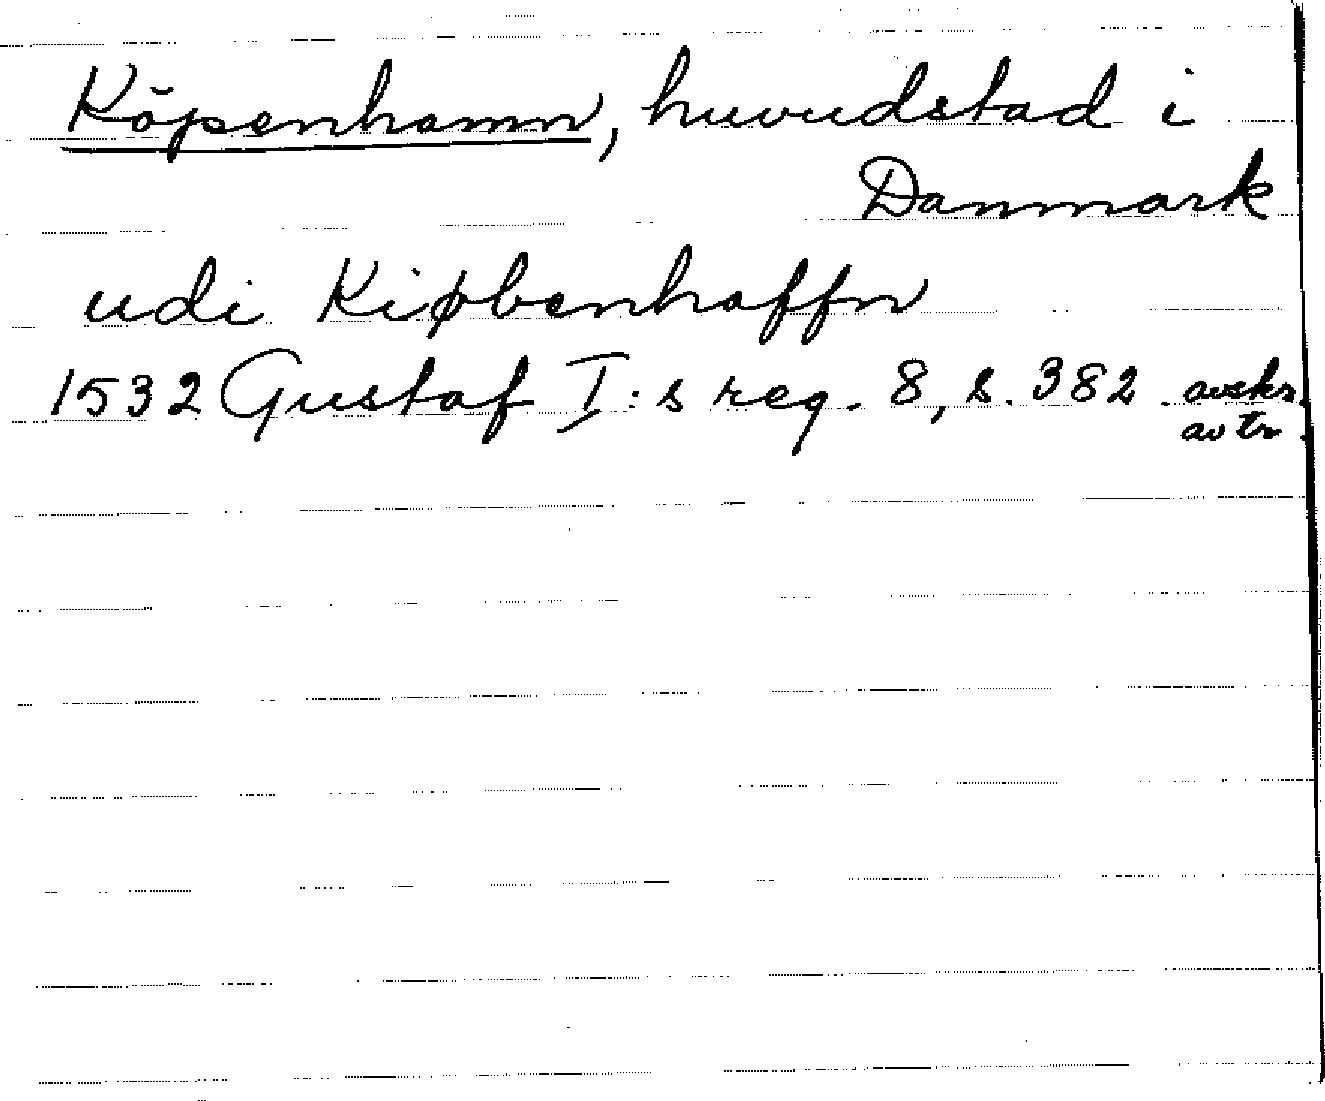 Köpenhamn, huvudstad i
Danmark
udi Kiøbenhaffn
1532 Gustaf I:s reg. 8, s. 382 avskr.
av tr.